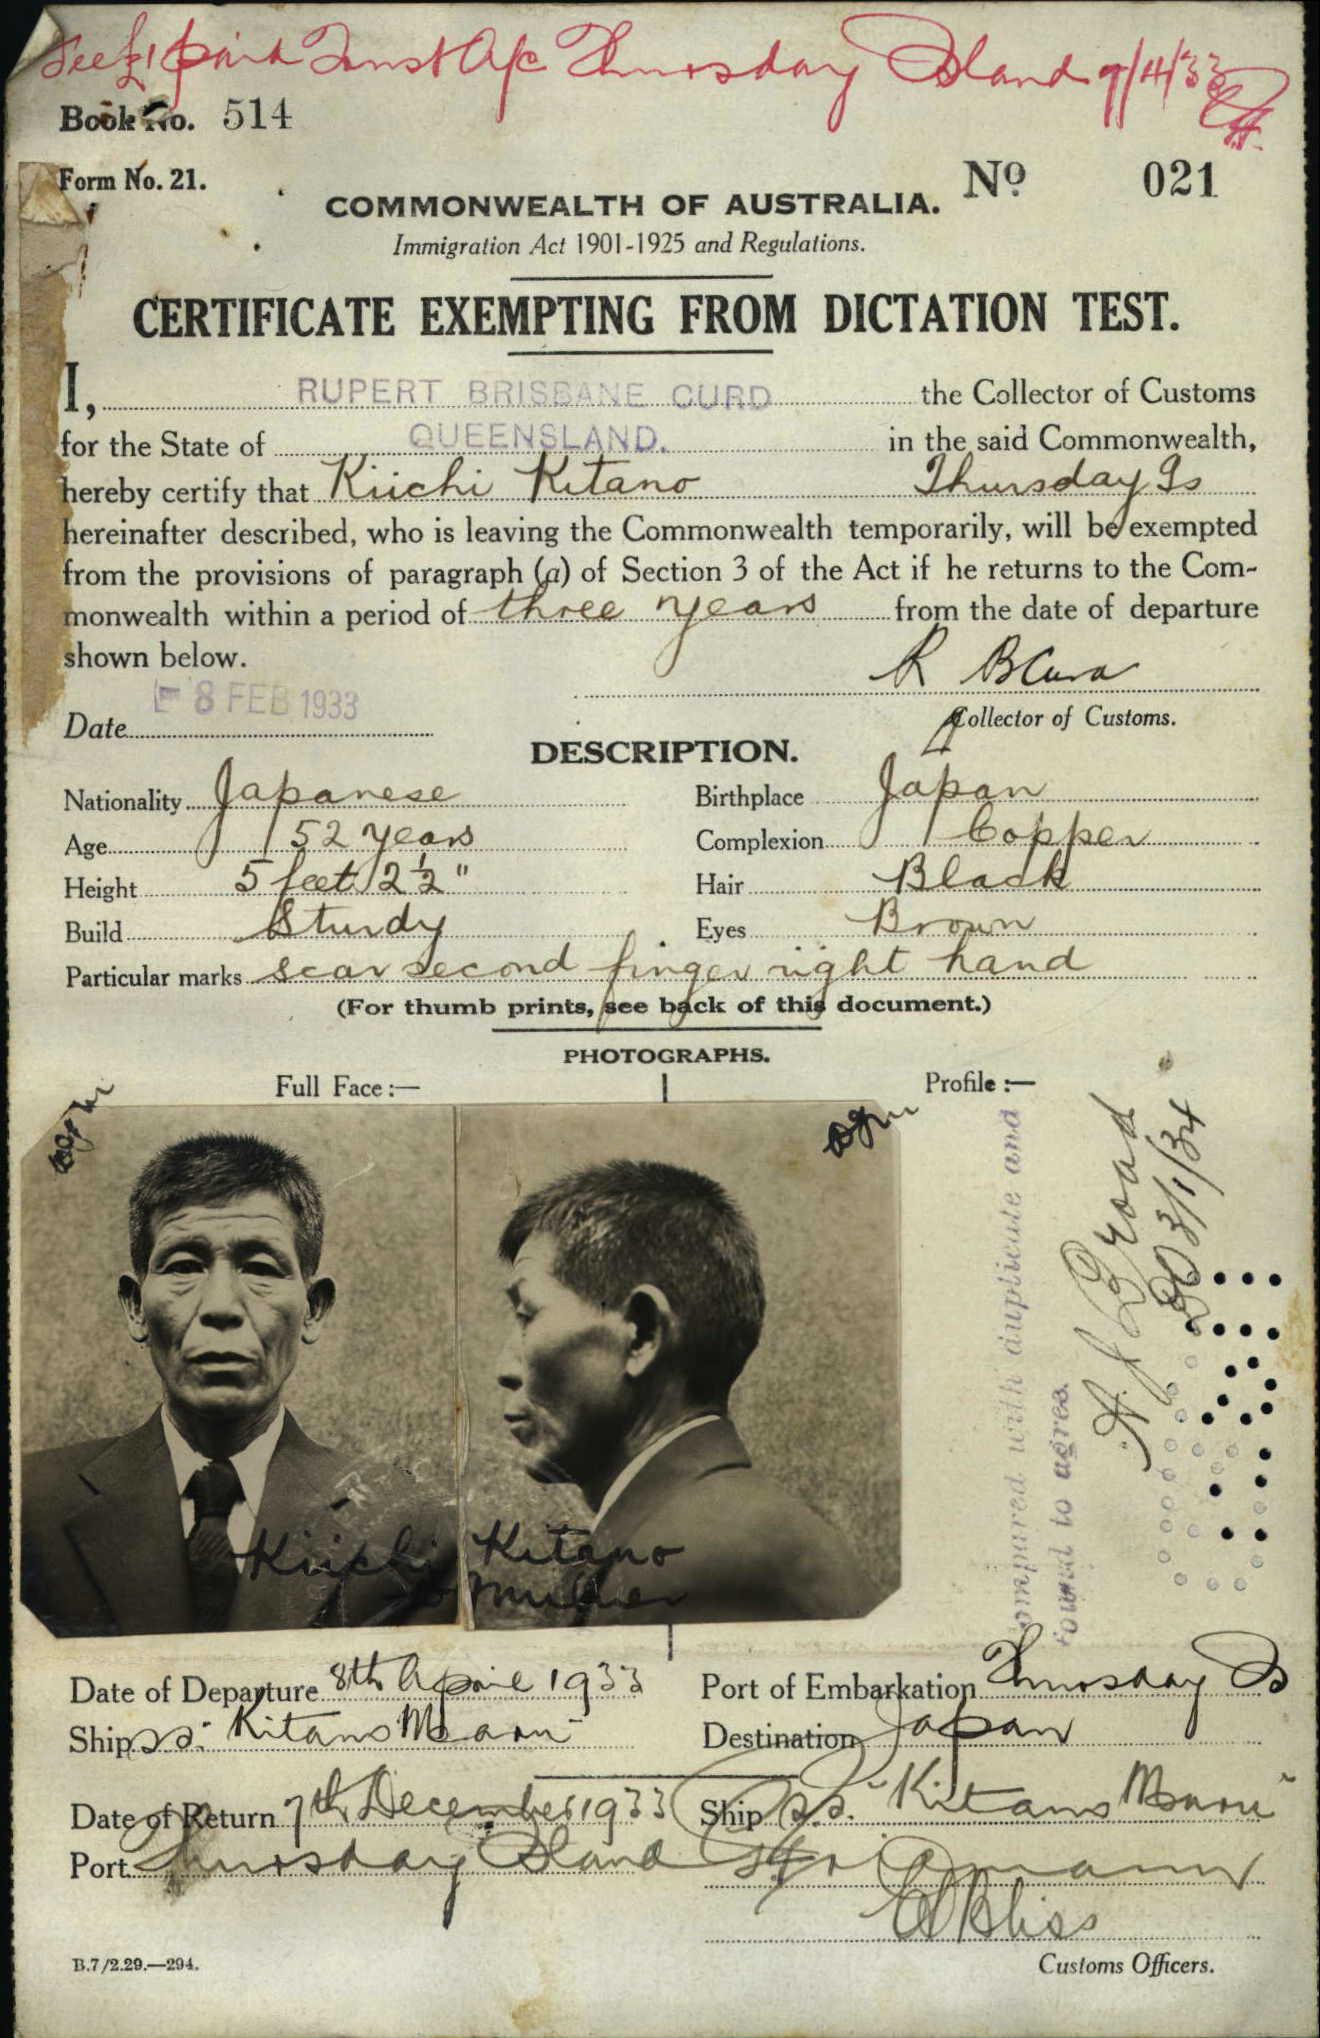 Fee £1 paid Trust A/c Thursday Island 9/11/33
Book No. 514
Form No. 21.
No. 021
COMMONWEALTH OF AUSTRALIA.
Immigration Act 1901-1925 and Regulations.
CERTIFICATE EXEMPTING FROM DICTATION TEST.
I, RUPERT BRISBANE CURD the Collector of Customs
for the State of QUEENSLAND. in the said Commonwealth,
hereby certify that Kiichi Kitano Thursday Is
hereinafter described, who is leaving the Commonwealth temporarily, will be exempted
from the provisions of paragraph (a) of Section 3 of the Act if he returns to the Com-
monwealth within a period of three years from the date of departure
shown below.
R B Curd
Date 8 FEB 1933
Collector of Customs.
DESCRIPTION.
Nationality Japanese Birthplace Japan
Age 52 years Complexion Copper
Height 5 feet 2½" Hair Black
Build Sturdy Eyes Brown
Particular marks scar second finger right hand
(For thumb prints, see back of this document.)
PHOTOGRAPHS.
Full Face:— Profile:—
Kiichi Kitano
compared with duplicate and
found to agree.
30/1/34
Date of Departure 8th April 1933 Port of Embarkation Thursday Is
Ship ss. Kitano Maru Destination Japan
Date of Return 7th December 1933 Ship s.s. "Kitano Maru"
Port Thursday Island
Customs Officers.
B.7/2.29.—294.